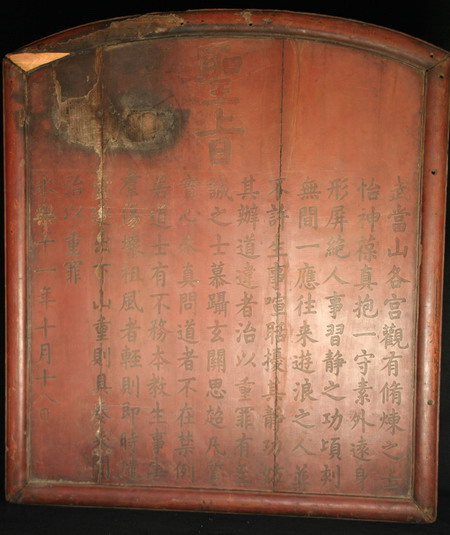 聖旨
武當山各宮觀有脩煉之士
怡神葆真抱一守素外遠身
形屏絕人事習靜之功頃刻
無間一應往來遊浪之人並
不許生事喧聒擾其靜功妨
其辦道違者治以重罪有至
誠之士慕躡玄關思超凡質
實心参真問道者不在禁例
若道士有不務本教生事害
群 壞祖風者輕則即時
出下山重則具奏来
治以重罪
十一年十月十八日